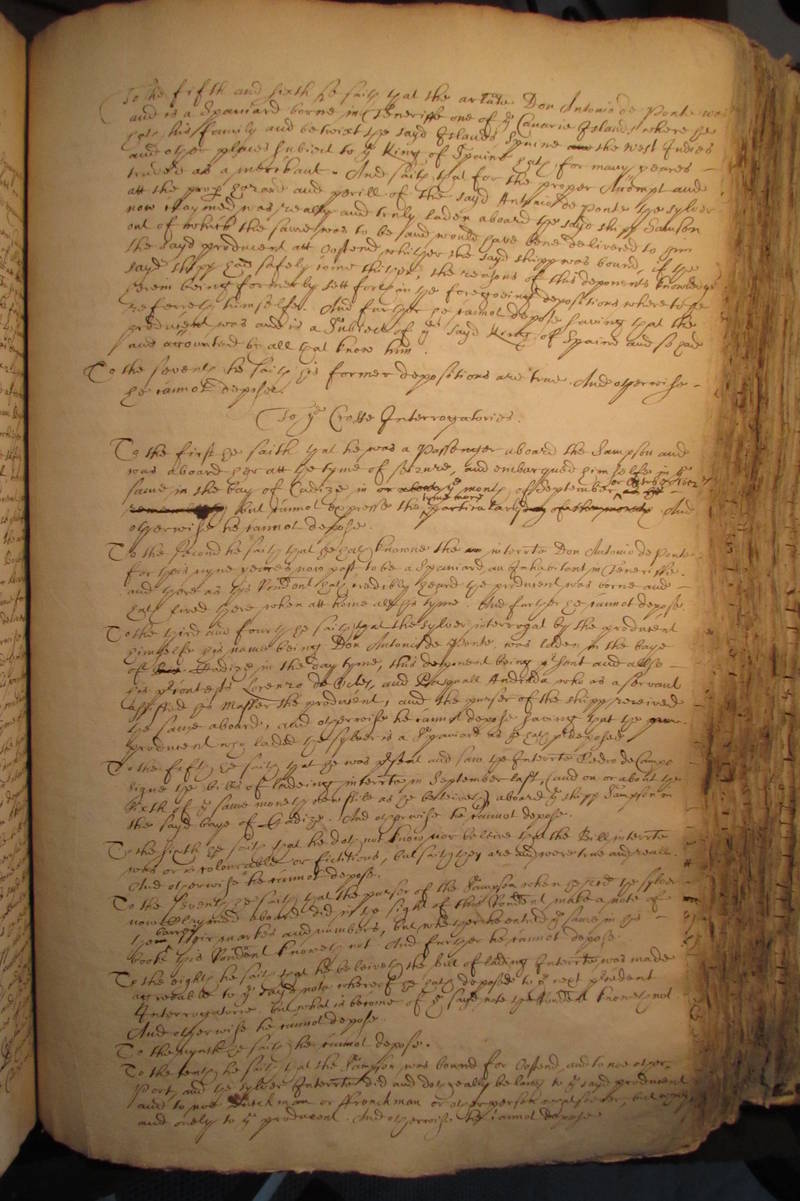 To the fifth and sixth he saith that the arlate Don Antonio de Ponte was
and is a Spaniard borne in Teneriffe one of ye Canarie Islands where he
hath his family and betwixt the sayd Islands Spaine the West Indies
and other places subiect to ye King of Spaine hath for many yeares
traded as a merchant. And saith that for the proper Accompt and
att the proper hazard and perill of the sayd Antonio de Ponte the sylver
now claymed was really and truly laden aboard the sayd shipp Sampson
out of which the same was to be and would have bene delivered to him
the sayd producent att Ostend whither the sayd shipp was bound, if the
sayd shipp had safely come thither, the reasons of this deponents knowledge
herein being formerly sett forth in the foregoeing depositions whereto he
referreth himselfe. And further he cannot depose saving that the
producent was and is a Subiect of ye sayd King of Spaine and so had
and accounted by all that know him.
To the seventh he saith his former depositions are true. And otherwise
he cannot depose.
To ye Crosse Interrogatories.
To the first he saith that he was a Passenger aboard the Sampson and
was aboard her att the tyme of seizure, and embarqued himselfe in ye
same in the bay of Cadize in ye month of September or October 1652
but cannot expresse the tyme more particularly And
otherwise he cannot depose.
To the second he saith that he hath knowne the interrte Don Antonio de Ponte
for this nyne yeeres now past to be a Spaniard, an Inhabitant in Teneriffe
and there as this Rendent hath credibly heard the producent was borne and
hath lived there when att home all his tyme. And further he cannot depose.
To the third and fourth he saith that the sylver interrogat by the producent
himselfe his name being Don Antonio de Ponte was laden in the baye
of Cadize in the day tyme, this deponent being present and allso
his Lorenzo de and Andrada who as a servant
assisted his Master the producent, and the purser of the shipp received
the same aboard, and otherwise he cannot depose saving that the
producent who laded the sylver is a Spaniard as he hath predeposed.
To the fifth he saith that he was present and saw the Interrte Pedro de Campo
signe the bills of ladeing interrte in September last, (and on or about the
sixth of ye same moneth new stile as he beleiveth) aboard ye shipp Sampson in
the sayd baye of Cadize. And otherwise he cannot depose.
To the sixth he saith that he doth not know nor beleive that the Bill interrte
was or is colourable or fictitious, but saith they are and were true and reall.
And otherwise he cannot depose.
To the seventh he saith that the purser of the Sampson when he recd the sylver
now claymed aboard did in the sight of this Rendent make a note of
the barrs their markes and numbers, but whether he entred ye same in his
booke this Rendent knoweth not. And further he cannot depose.
To the eighth he saith that he beleiveth the bill of lading Interrte was made
agreeable to ye sayd note whereof he hath deposed to ye next precedent
Interrogatorie, but what is become of ye sayd note the Rendent knoweth not
And otherwise he cannot depose.
To the nynth he saith he cannot depose.
To the tenth he saith that the Sampson was bound for Ostend, and to noe other
Port, and the sylver Interrte did and doth really belong to ye sayd producent
and to noe Dutchman or ffrenchman or other person whatsoever, but
and onely to ye producent. And otherwise he cannot depose.